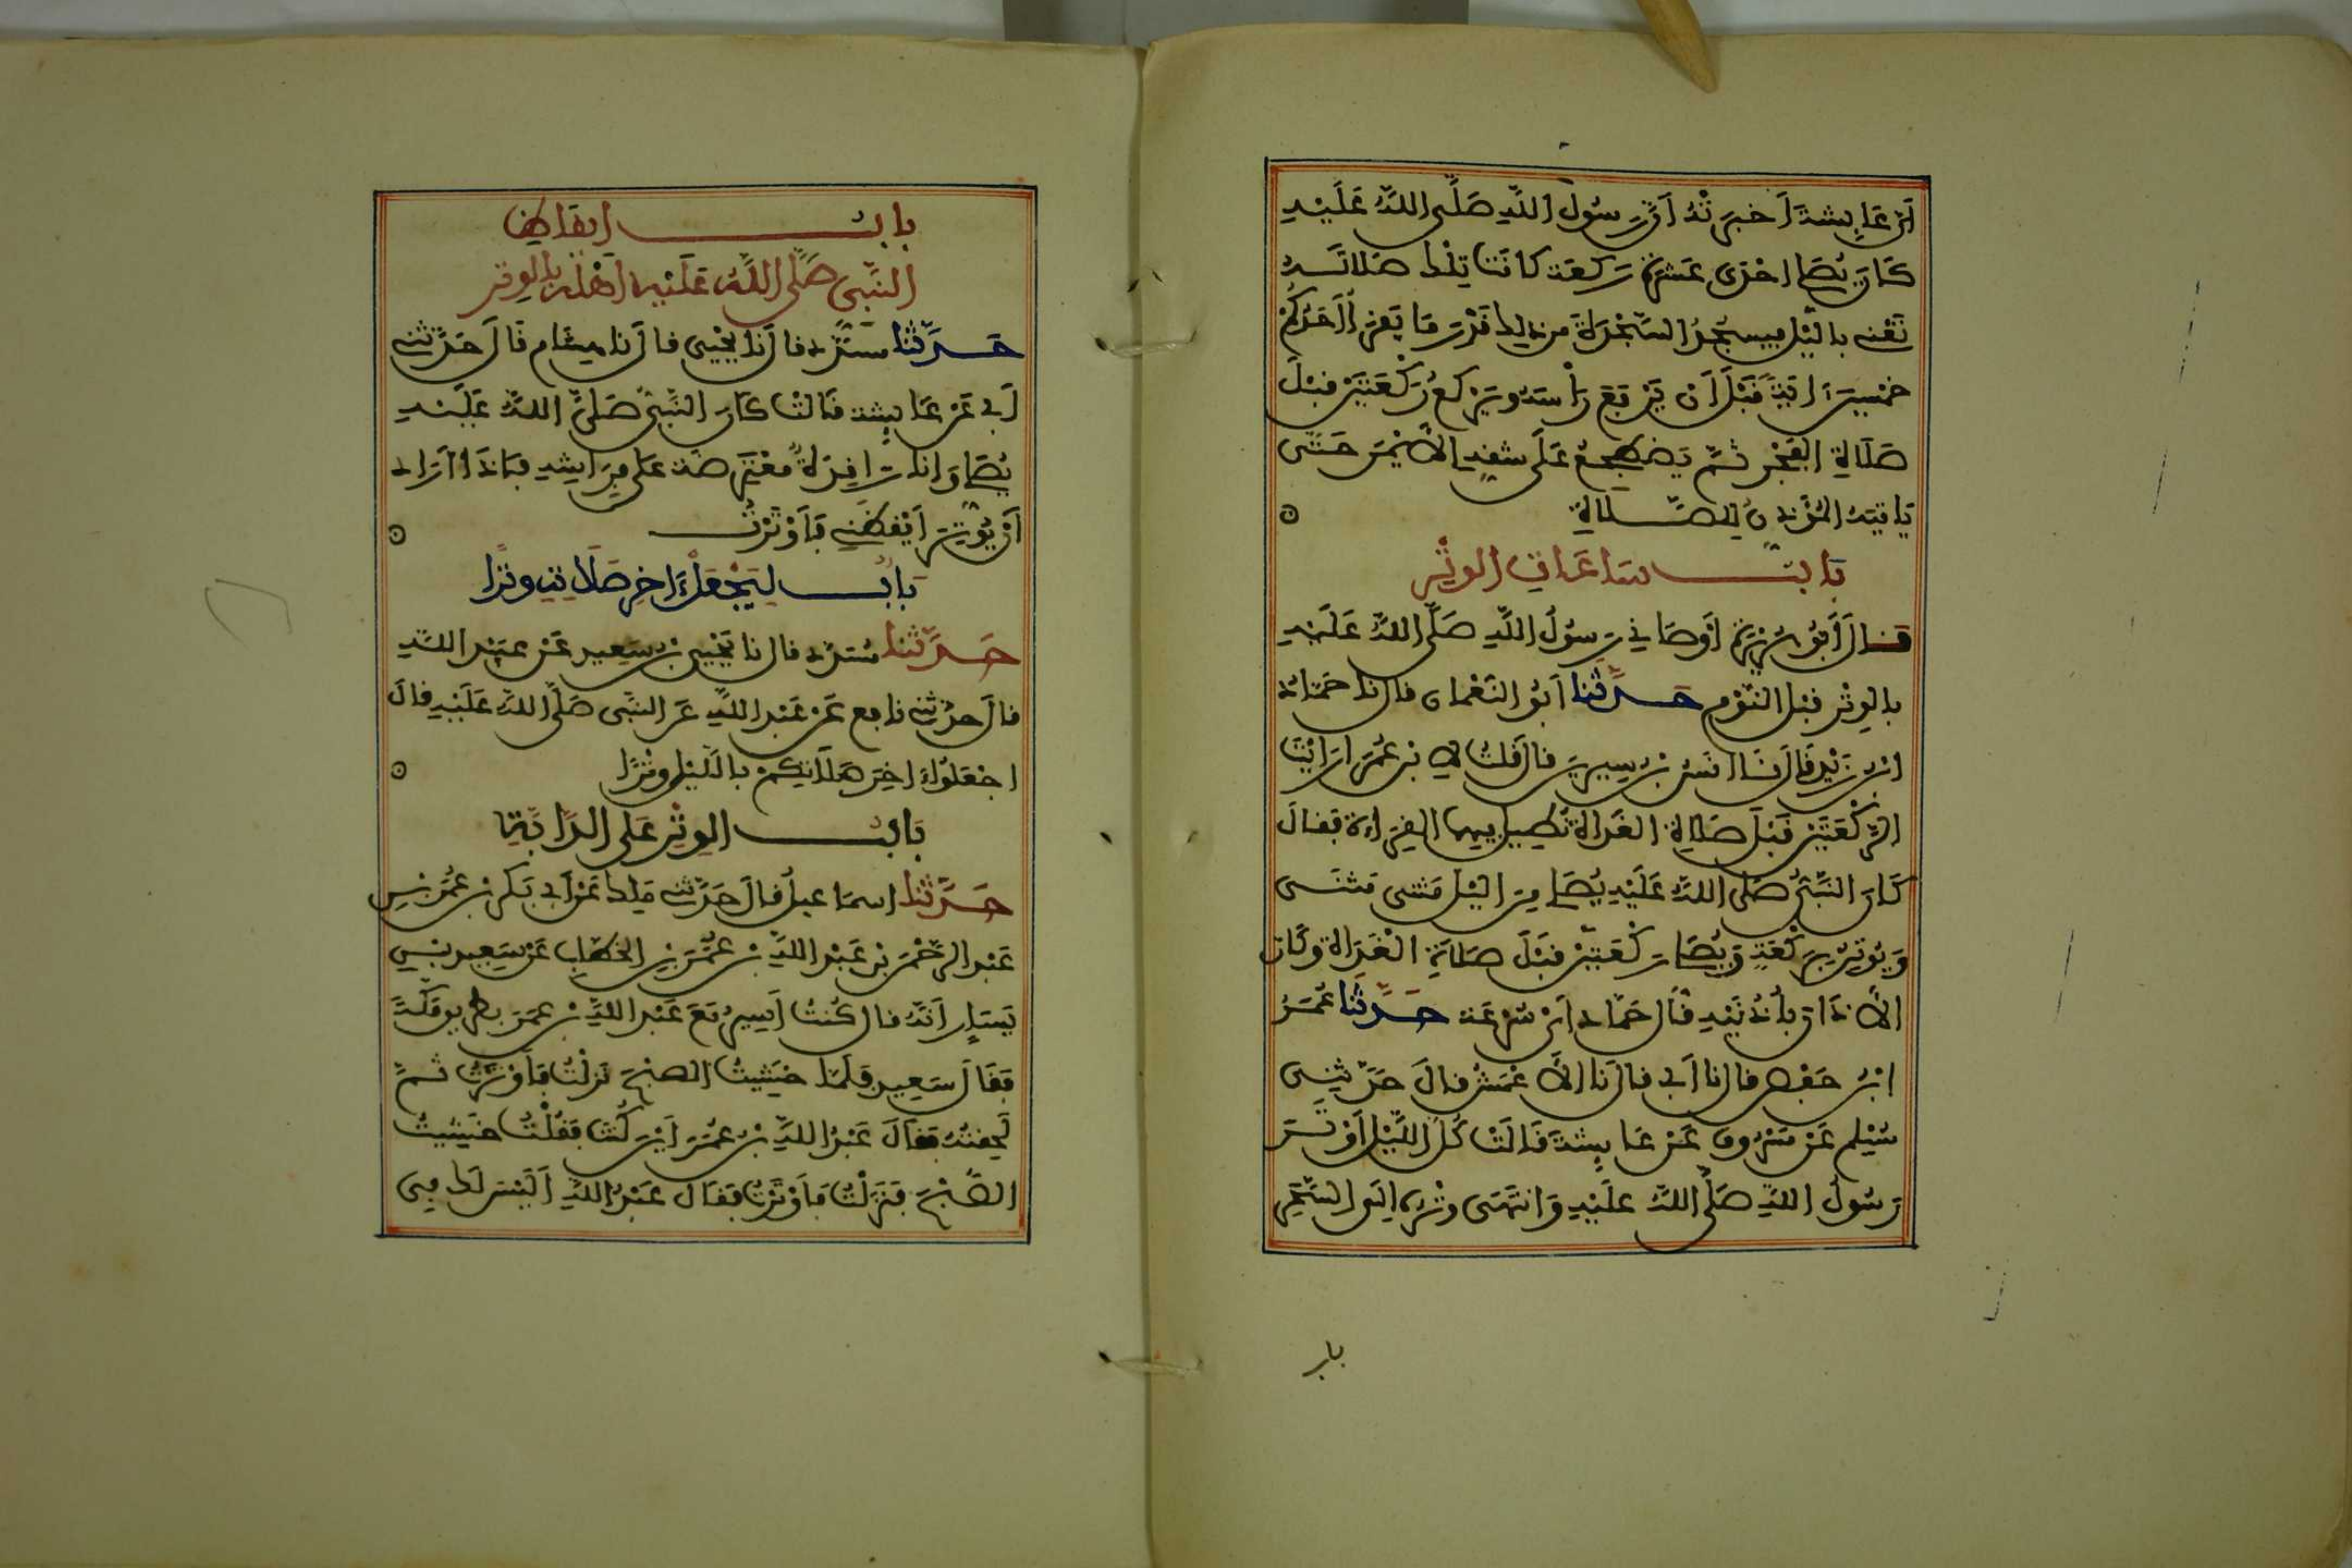 أن عائشة أخبرته أن رسول الله صلى الله عليه
كان يصلي إحدى عشرة ركعة كانت تلك صلاته
تعني بالليل فيسجد السجدة من ذلك قدر ما يقرأ أحدكم
خمسين اية قبل أن يرفع رأسه ويركع ركعتين قبل
صلاة الفجر ثم يضطجع على شقه الأيمن حتى
ياتيه المؤذن للصلاة
باب ساعات الوتر
قال أبو هريرة أوصاني رسول الله صلى الله عليه
بالوتر قبل النوم حدثنا أبو النعمان قال نا حماد
ابن زيد قال نا انس بن سيرين قال قلت لابن عمر ارايت
الركعتين قبل صلاة الغداة نطيل فيهما القراءة فقال
كان النبي صلى الله عليه يصلي من الليل مثنى مثنى
ويوتر بركعة ويصلي ركعتين قبل صلاة الغداة وكان
الأذان بأذنيه قال حماد أي سرعة حدثنا عمر
ابن حفص قال نا أبي قال نا الأعمش قال حدثني
مسلم عن مسروق عن عايشة قالت كل الليل أوتر
رسول الله صلى الله عليه وانتهى وتره إلى السحر
باب
باب ايقاظ
النبي صلى الله عليه أهله بالوتر
حدثنا مسدد قال نا يحيى قال نا هشام قال حدثني
أبي عن عايشة قالت كان النبي صلى الله عليه
يصلي وانا راقدة معترضة على فراشه فإذا أراد
أن يوتر أيقظني فأوترت
باب ليجعل اخر صلاته وترا
حدثنا مسدد قال نا يحيى بن سعيد عن عبيد الله
قال حدثني نافع عن عبد الله عن النبي صلى الله عليه قال
اجعلوا اخر صلاتكم بالليل وترا
باب الوتر على الدابة
حدثنا اسماعيل قال حدثني ملك عن أبي بكر بن عمر بن
عبد الرحمن بن عبد الله بن عمر بن الخطاب عن سعيد بن
يسار أنه قال كنت أسير مع عبد الله بن عمر بطريق مكة
فقال سعيد فلما خشيت الصبح نزلت فأوترت ثم
لحقته فقال عبد الله بن عمر أين كنت فقلت خشيت
الصبح فنزلت فأوترت فقال عبد الله أليس لك في